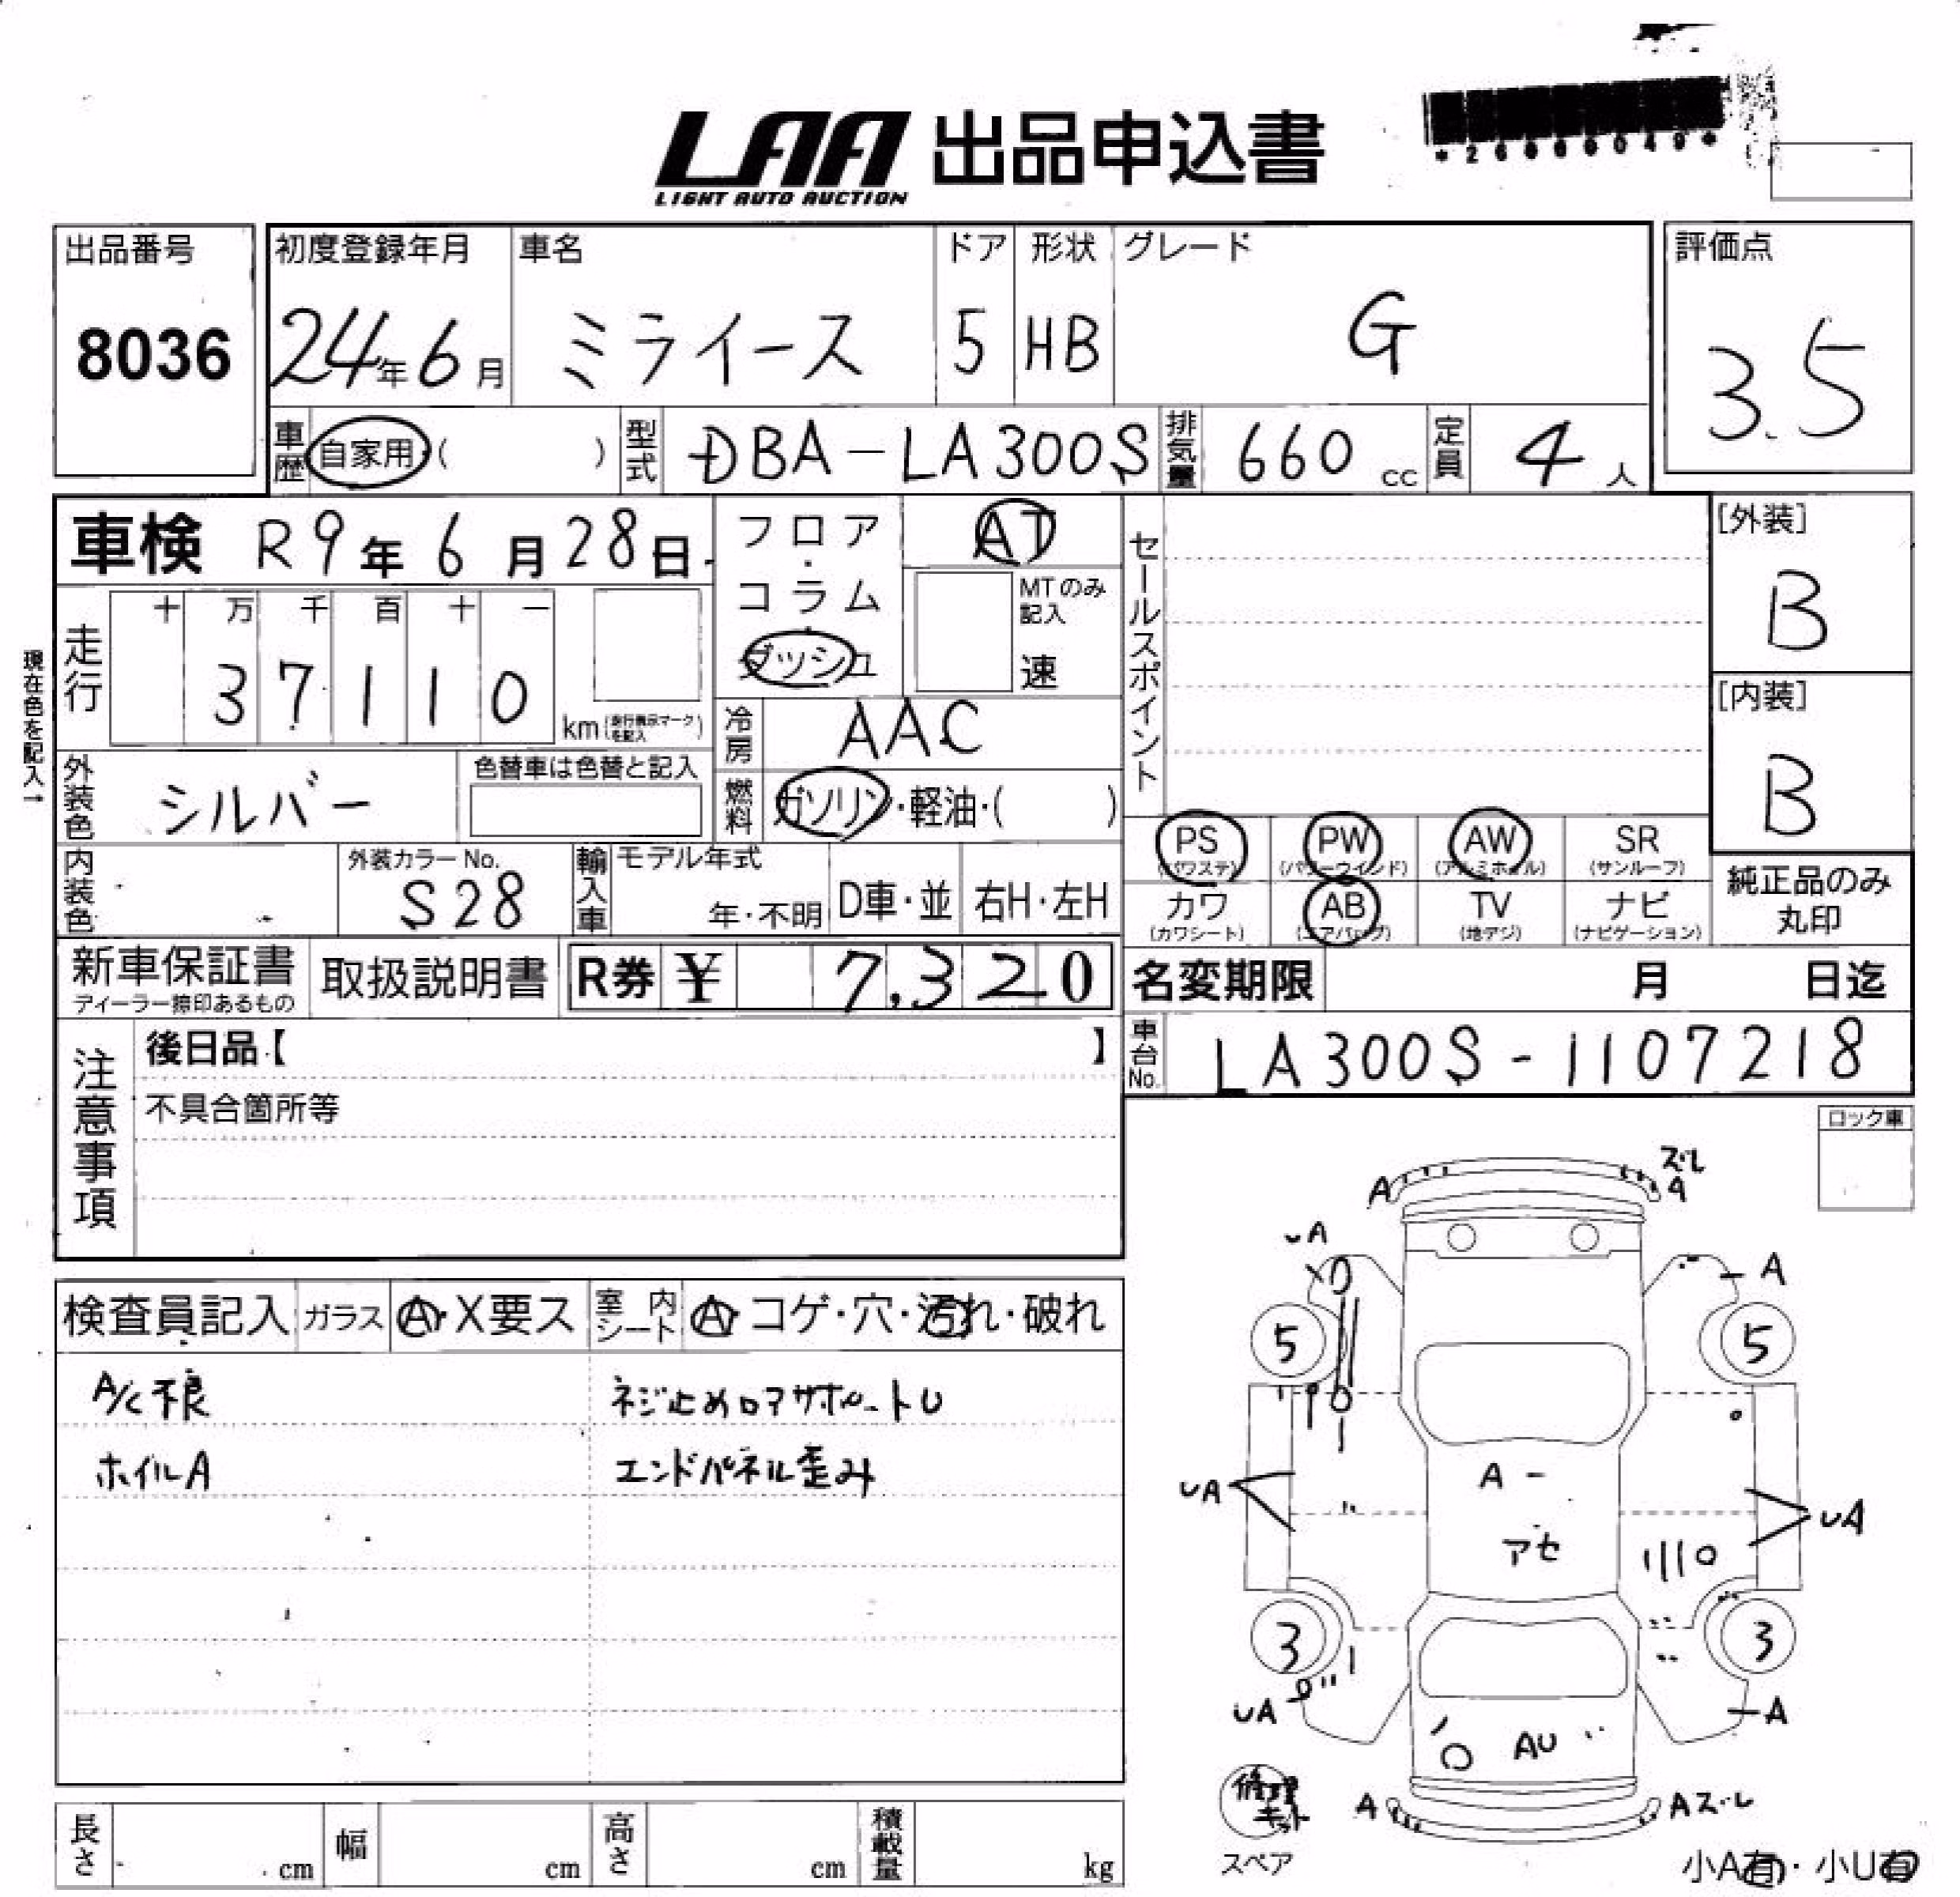 LAA 出品申込書
LIGHT AUTO AUCTION
出品番号
8036
初度登録年月
24年6月
車名
ミライース
ドア
5
形状
HB
グレード
G
評価点
3.5
車歴 自家用・( )
型式 DBA-LA300S
排気量 660 cc
定員 4 人
車検 R9年6月28日
フロア・コラム・ダッシュ
AT
MTのみ記入
速
セールスポイント
[外装]
B
[内装]
B
現在色を記入→
走行
十 万 千 百 十 一
3 7 1 1 0
km(走行表示マークを記入)
冷房 AAC
外装色 シルバー
色替車は色替と記入
燃料 ガソリン・軽油・( )
内装色
外装カラーNo.
S28
輸入車
モデル年式
年・不明
D車・並
右H・左H
PS (パワステ)
PW (パワーウインド)
AW (アルミホイル)
SR (サンルーフ)
カワ (カワシート)
AB (エアバッグ)
TV (地デジ)
ナビ (ナビゲーション)
純正品のみ
丸印
新車保証書
ディーラー捺印あるもの
取扱説明書
R券 ¥ 7,320
名変期限 月 日迄
車台No. LA300S-1107218
注意事項
後日品【 】
不具合箇所等
ロック車
検査員記入
ガラス A・X要ス
室内シート A・コゲ・穴・汚れ・破れ
A/C不良
ネジ止めロアサポートU
ホイルA
エンドパネル歪み
A
ズレ
A
UA
A
5
5
UA
A
UA
アセ
3
3
UA
A
AU
修理キット
スペア
A
Aズレ
小A有・小U有
長さ cm
幅 cm
高さ cm
積載量 kg